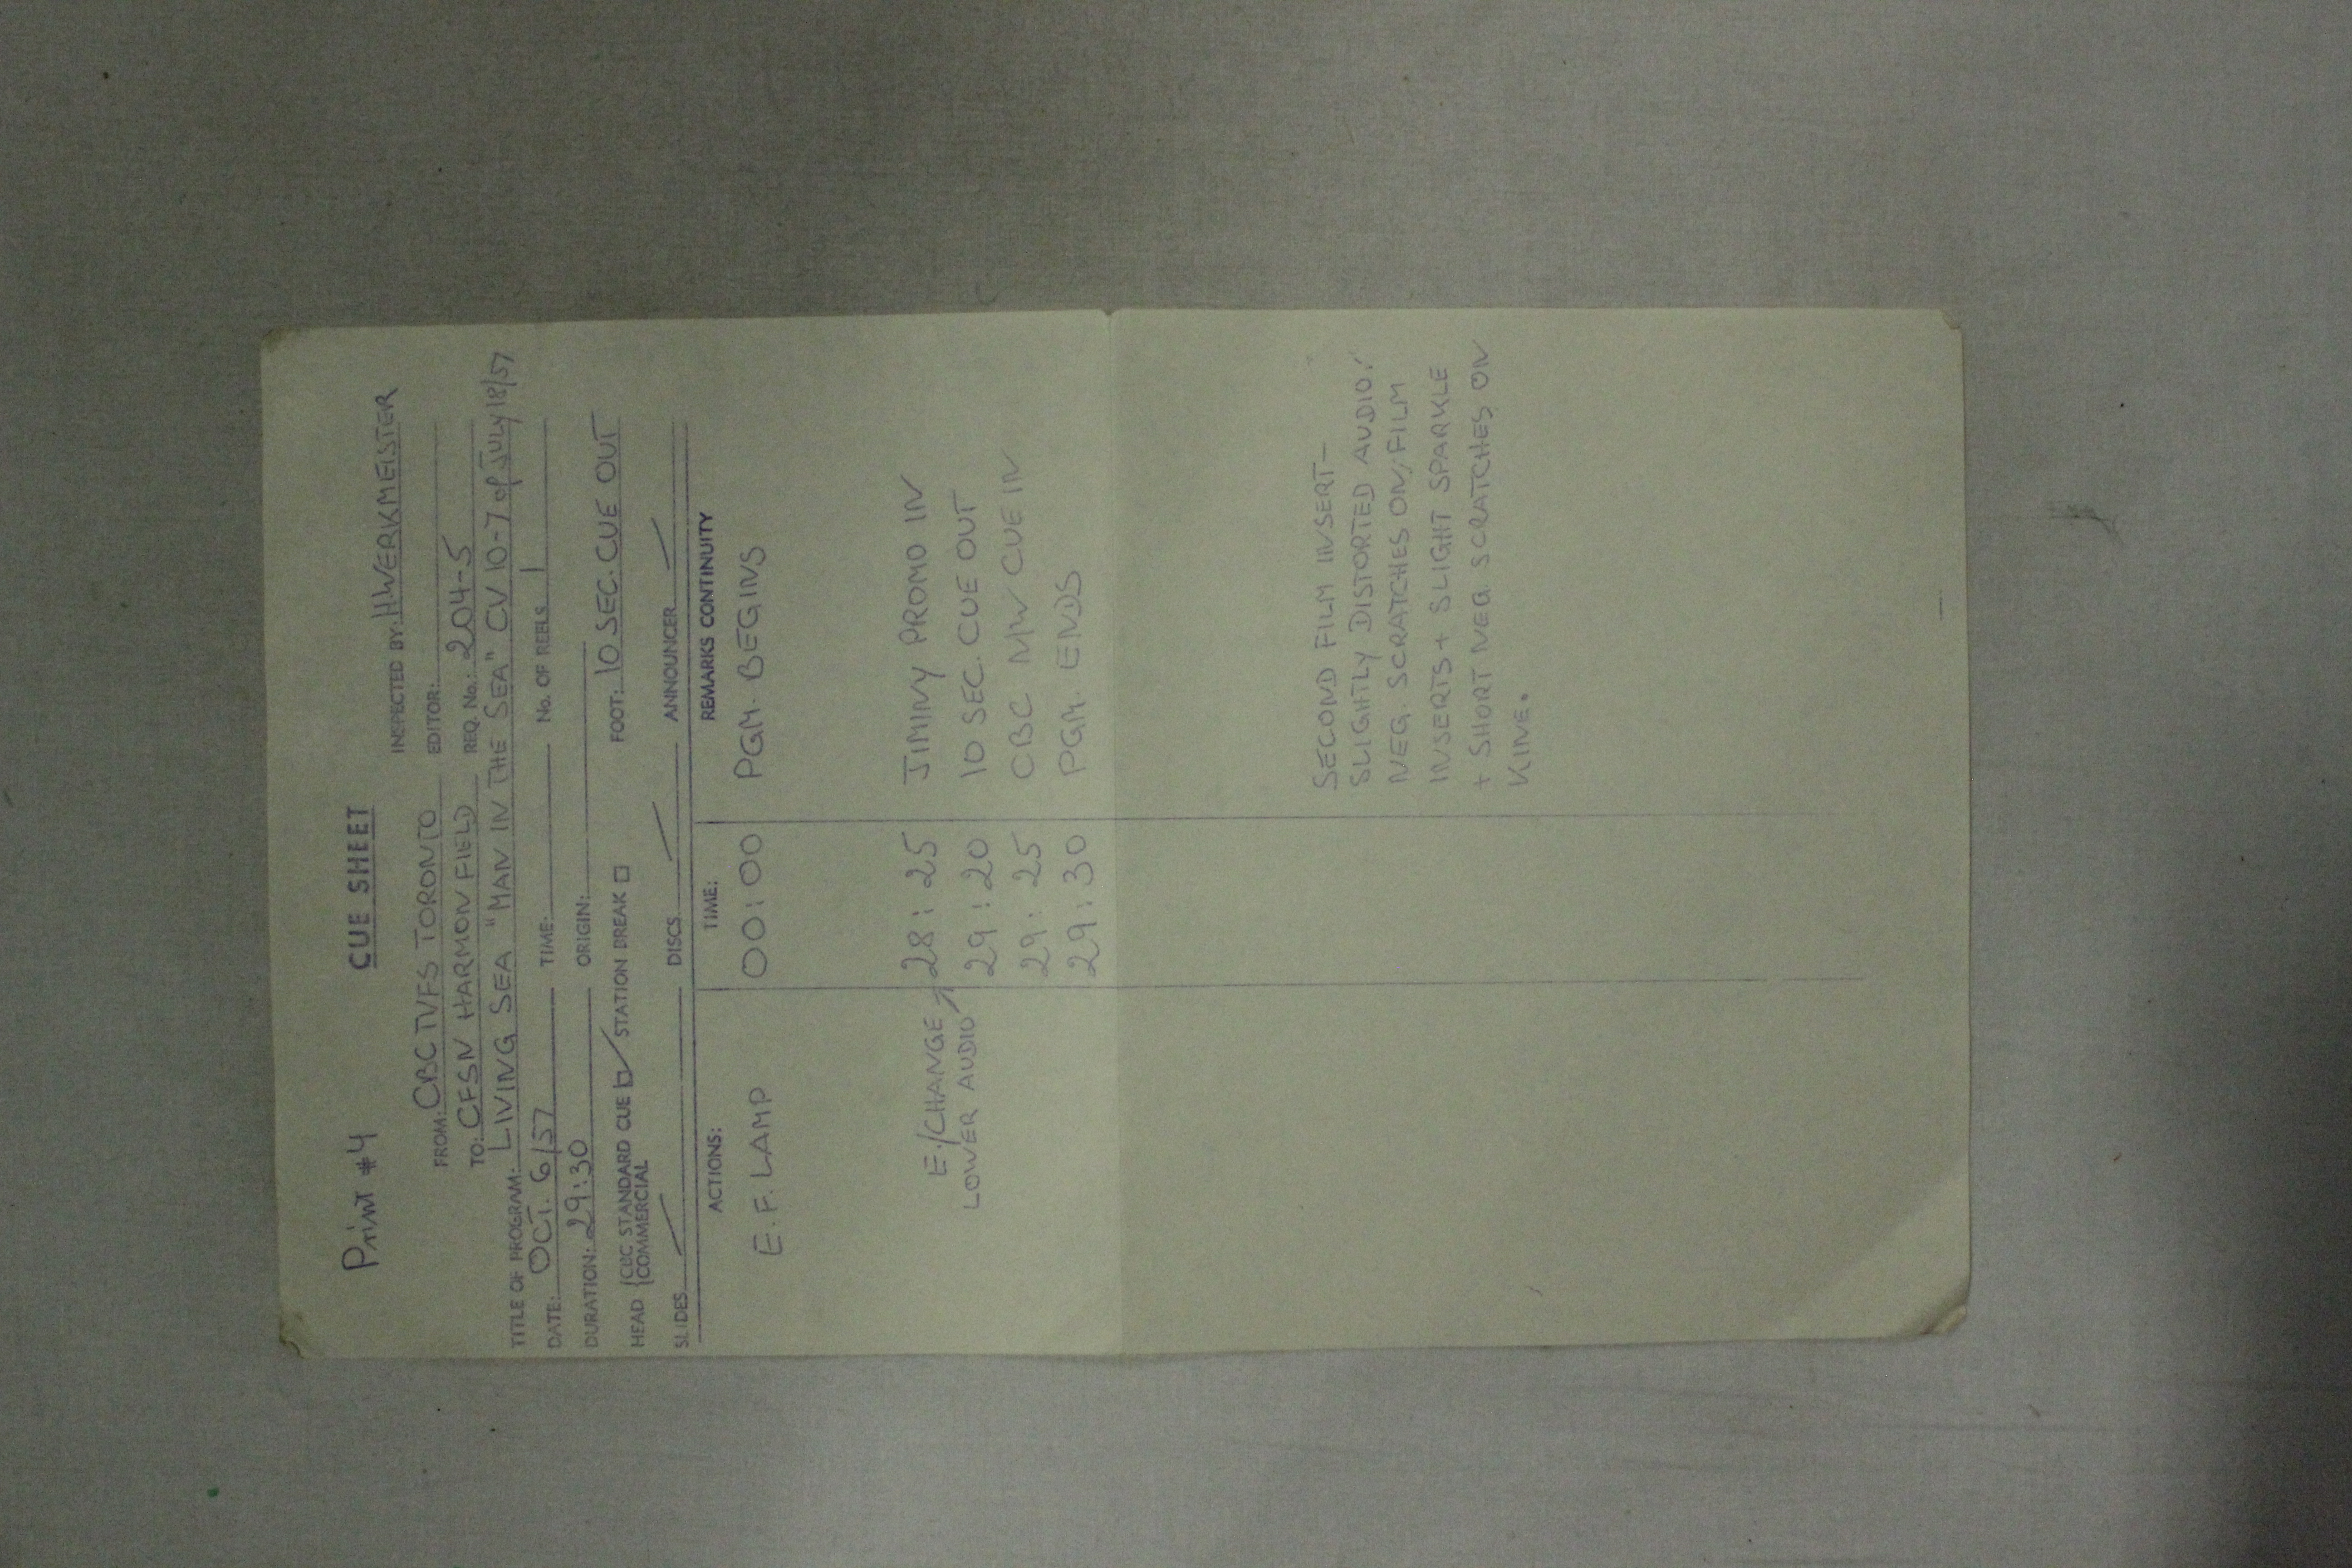 Print #4 CUE SHEET
INSPECTED BY: HWERKMEISTER
FROM: CBC TVFS TORONTO EDITOR:
TO: CFSN HARMON FIELD REQ. No.: 204-5
TITLE OF PROGRAM: LIVING SEA "MAN IN THE SEA" CV 10-7 of JULY 18/57
DATE: OCT. 6/57 TIME: No. OF REELS 1
DURATION: 29:30 ORIGIN:
HEAD {CBC STANDARD CUE ☑ STATION BREAK □ FOOT: 10 SEC. CUE OUT
{COMMERCIAL
SLIDES DISCS ANNOUNCER
ACTIONS: TIME: REMARKS CONTINUITY
E.F. LAMP 00:00 PGM. BEGINS
E./CHANGE 28:25 JIMINY PROMO IN
LOWER AUDIO 29:20 10 SEC. CUE OUT
29:25 CBC MW CUE IN
29:30 PGM. ENDS
SECOND FILM INSERT—
SLIGHTLY DISTORTED AUDIO!
NEG. SCRATCHES ON FILM
INSERTS + SLIGHT SPARKLE
+ SHORT NEG. SCRATCHES ON
KINE.